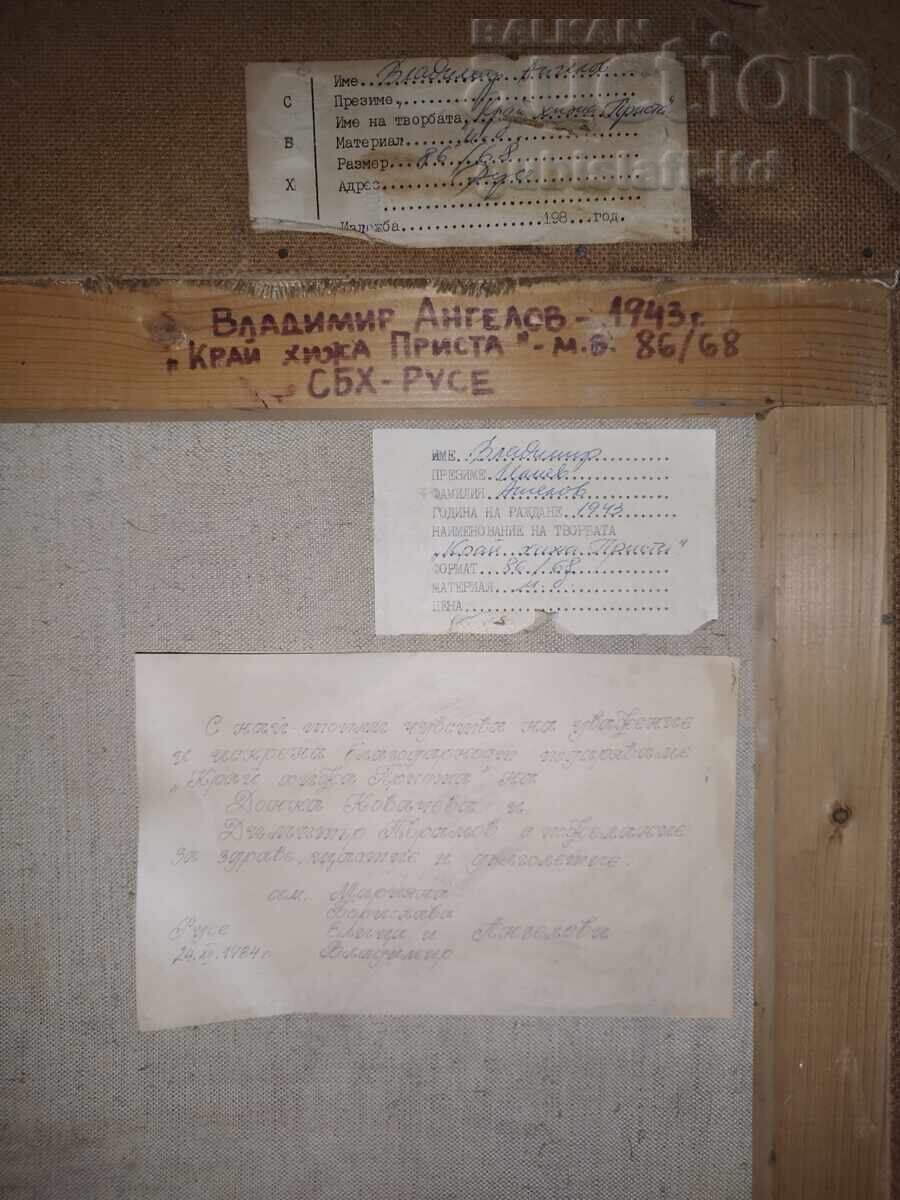 BALKAN
auction
С
Б
Х
Име..Владимир Ангелов
Презиме
Име на творбата "Край хижа Приста"
Материал...м.б.
Размер...86/68
Адрес.......Русе
Изложба...............198...год.
ВЛАДИМИР АНГЕЛОВ - 1943 г.
"КРАЙ ХИЖА ПРИСТА" - м.б. 86/68
СБХ-РУСЕ
ИМЕ..Владимир
ПРЕЗИМЕ
ФАМИЛИЯ Ангелов
ГОДИНА НА РАЖДАНЕ..1943
НАИМЕНОВАНИЕ НА ТВОРБАТА
"Край хижа Приста"
ФОРМАТ...86/68
МАТЕРИАЛ...м.б.
ЦЕНА
С най-топли чувства на уважение
и искрена благодарност подаряваме
"Край хижа Приста" на
Донка Ковачева и
Димитър Аврамов с пожелание
за здраве, щастие и дълголетие.
от. Марияна
Борислава
Русе Елеци и Ангелови
24. 1984 г. Владимир